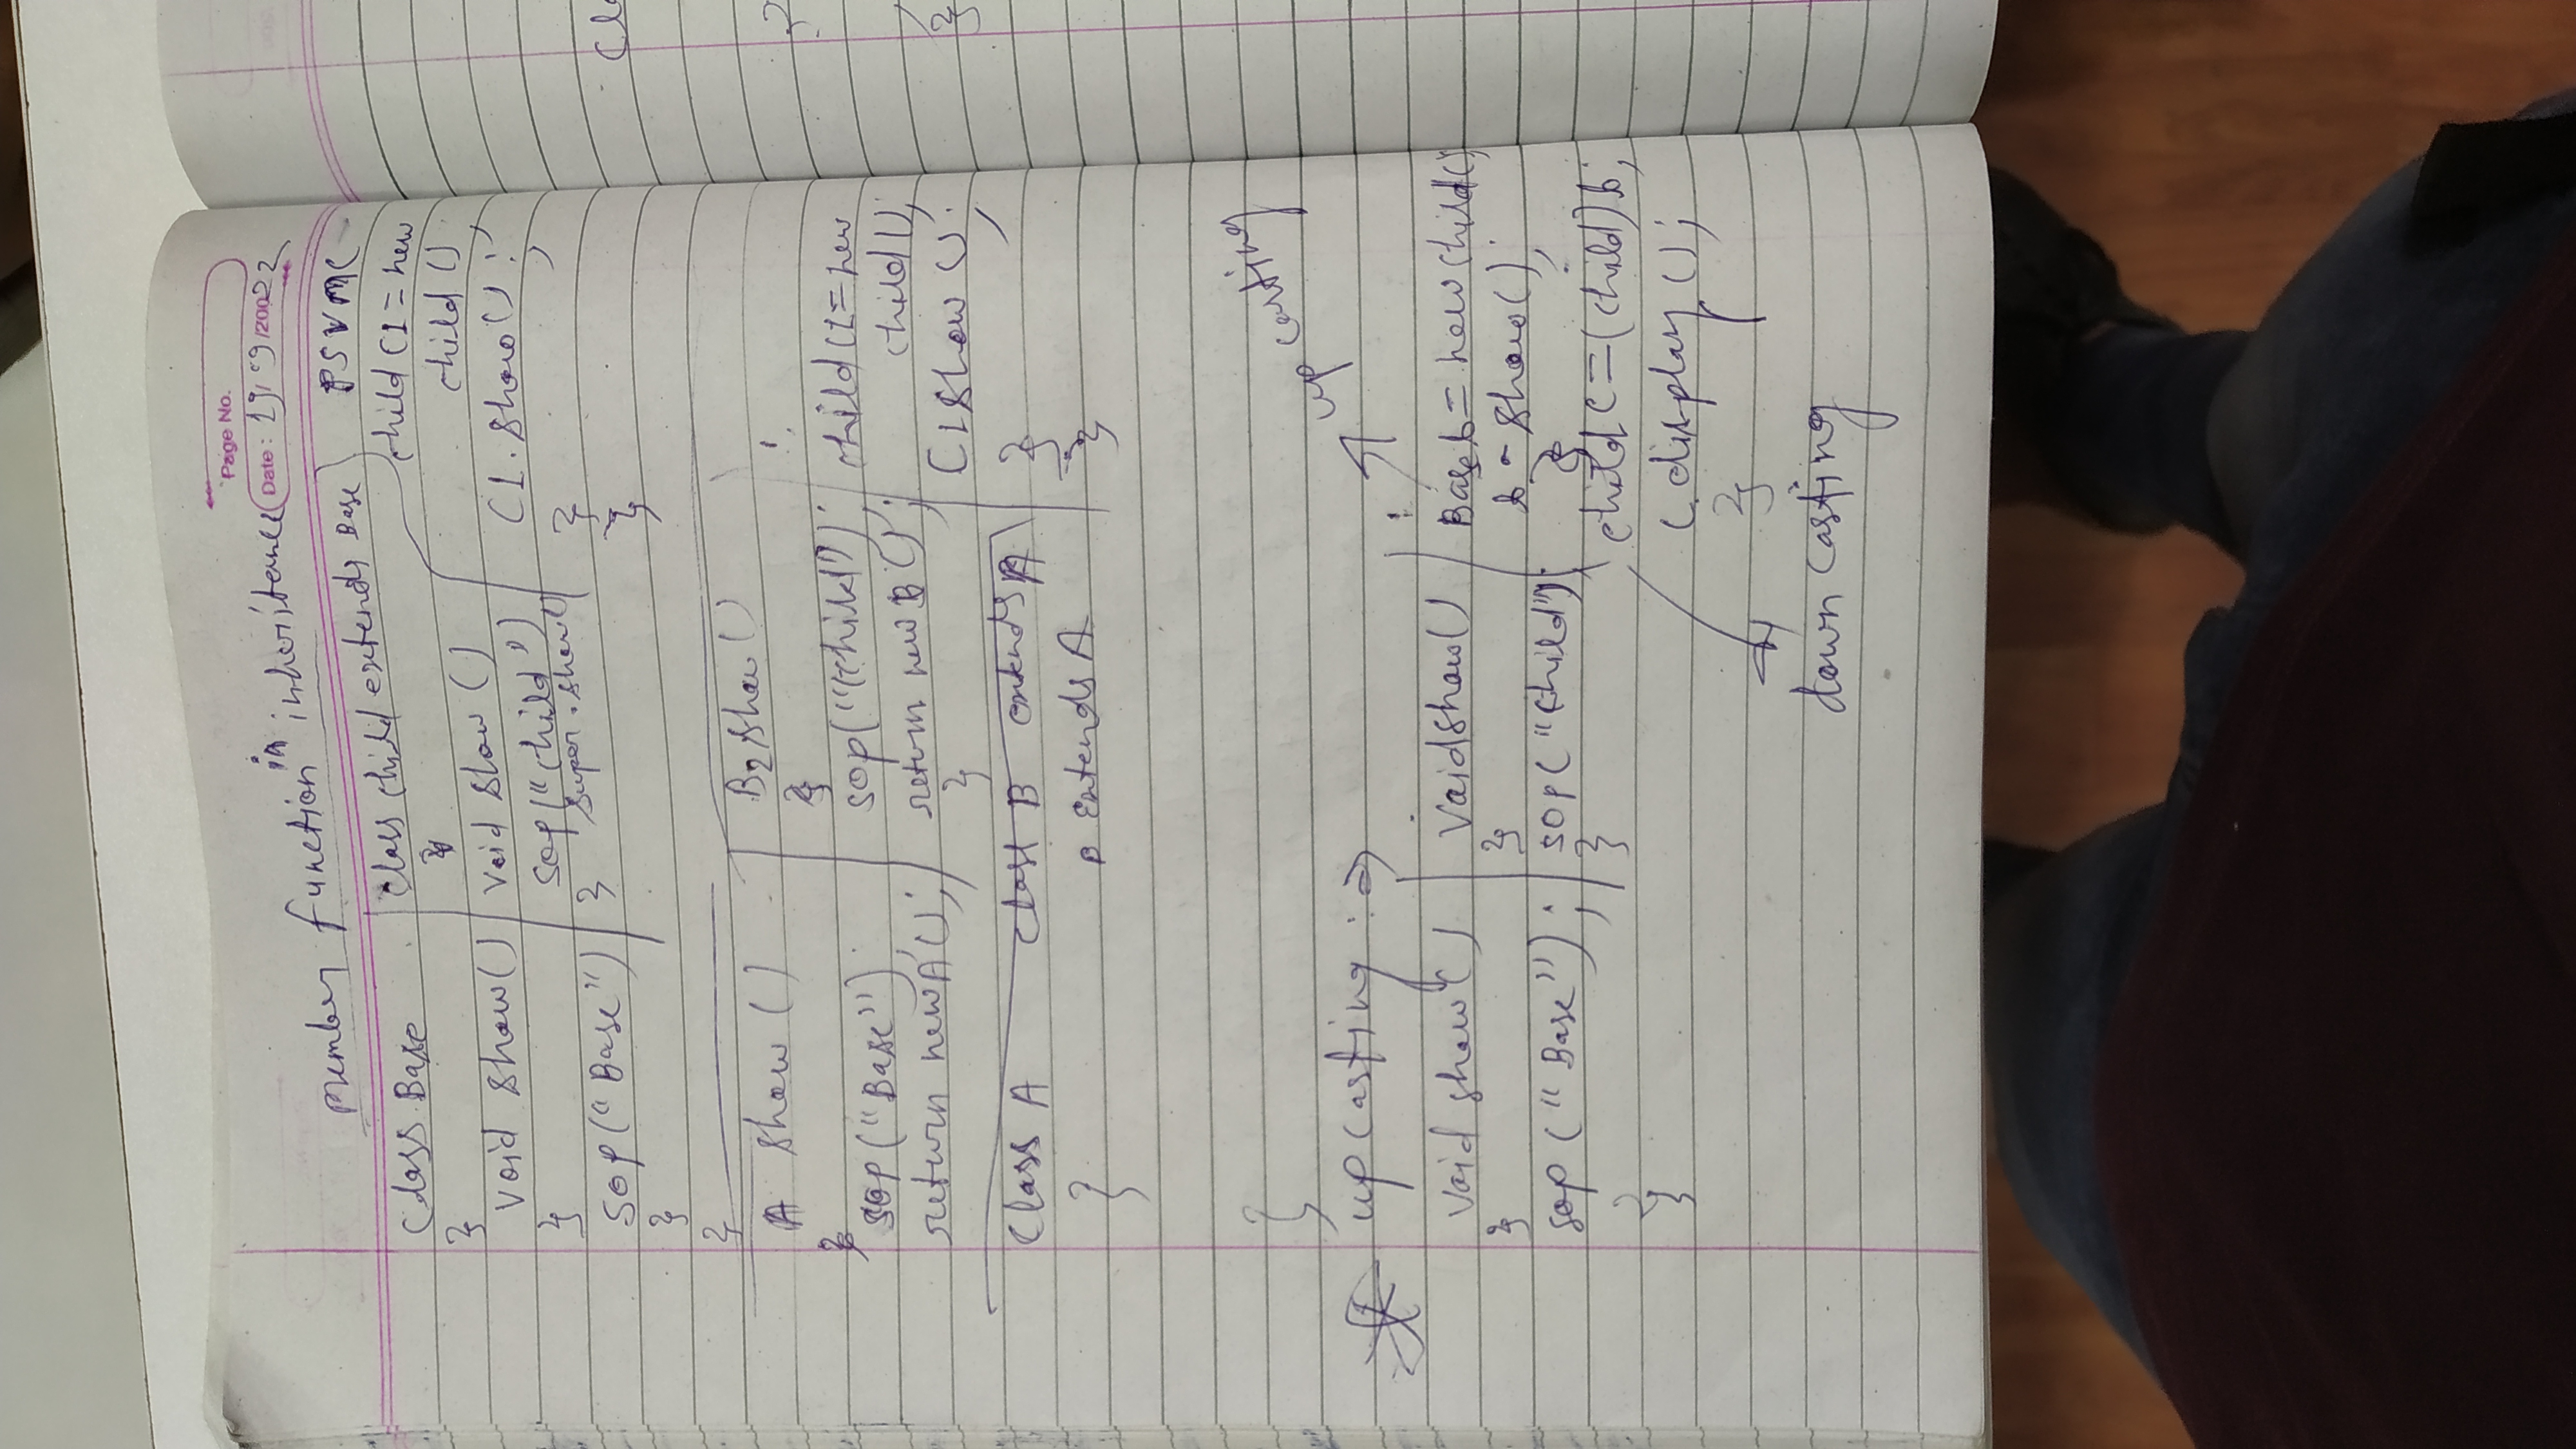 Page No.
Date: 19/09/20022
member function in inheritance
Class Base
}
void show()
}
sop("Base")
}
}
class child extends Base
}
void show()
sop("child")
super.show()
}
PSVMC
child C1 = new
child();
C1.show();
}
}
A show()
}
sop("Base");
return new A();
B2 show()
}
sop("child");
return new B();
}
child C1 = new
child();
C1 show();
}
}
Class A
}
class B extends A
B extends A
}
up casting :⇒
void show()
}
sop("Base");
}
}
void show()
}
sop("child");
}
up casting
Base b = new child();
b - show();
}
child c = (child) b;
c.display();
}
down casting
Cla
}